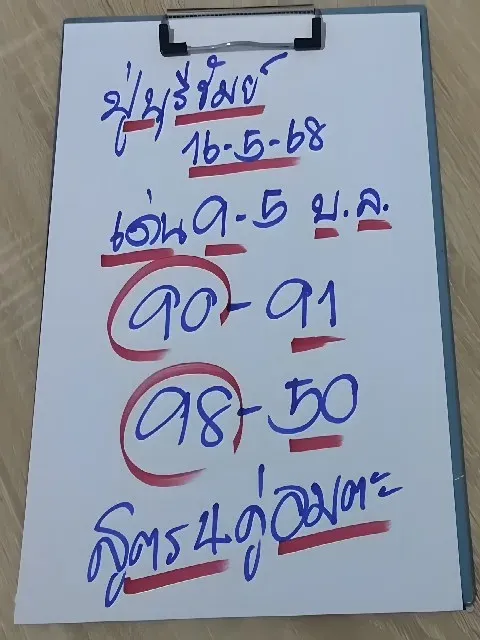 ปู่บุรีรัมย์
16-5-68
เด่น 9-5 บ.ล.
90-91
98-50
สูตร 4 คู่อมตะ